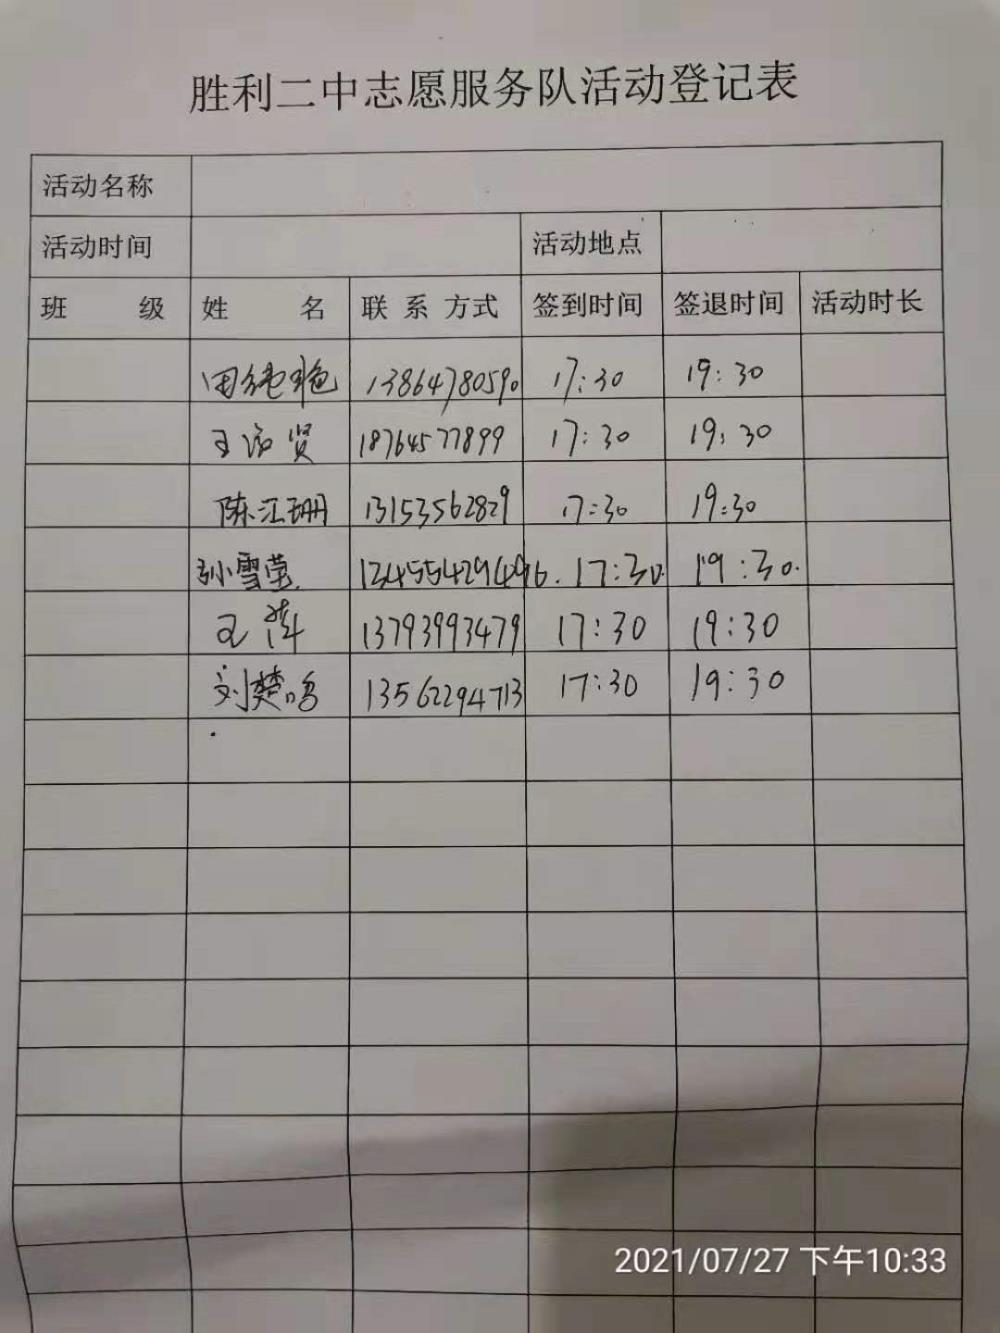 胜利二中志愿服务队活动登记表
活动名称
活动时间 活动地点
班 级 姓 名 联 系 方式 签到时间 签退时间 活动时长
田纯艳 13864780590 17:30 19:30
王 贤 18764577899 17:30 19:30
陈江珊 13153562829 17:30 19:30
孙雪莹 17:30 19:30
王萍 13793993479 17:30 19:30
刘楚鸣 13562294713 17:30 19:30
2021/07/27 下午10:33